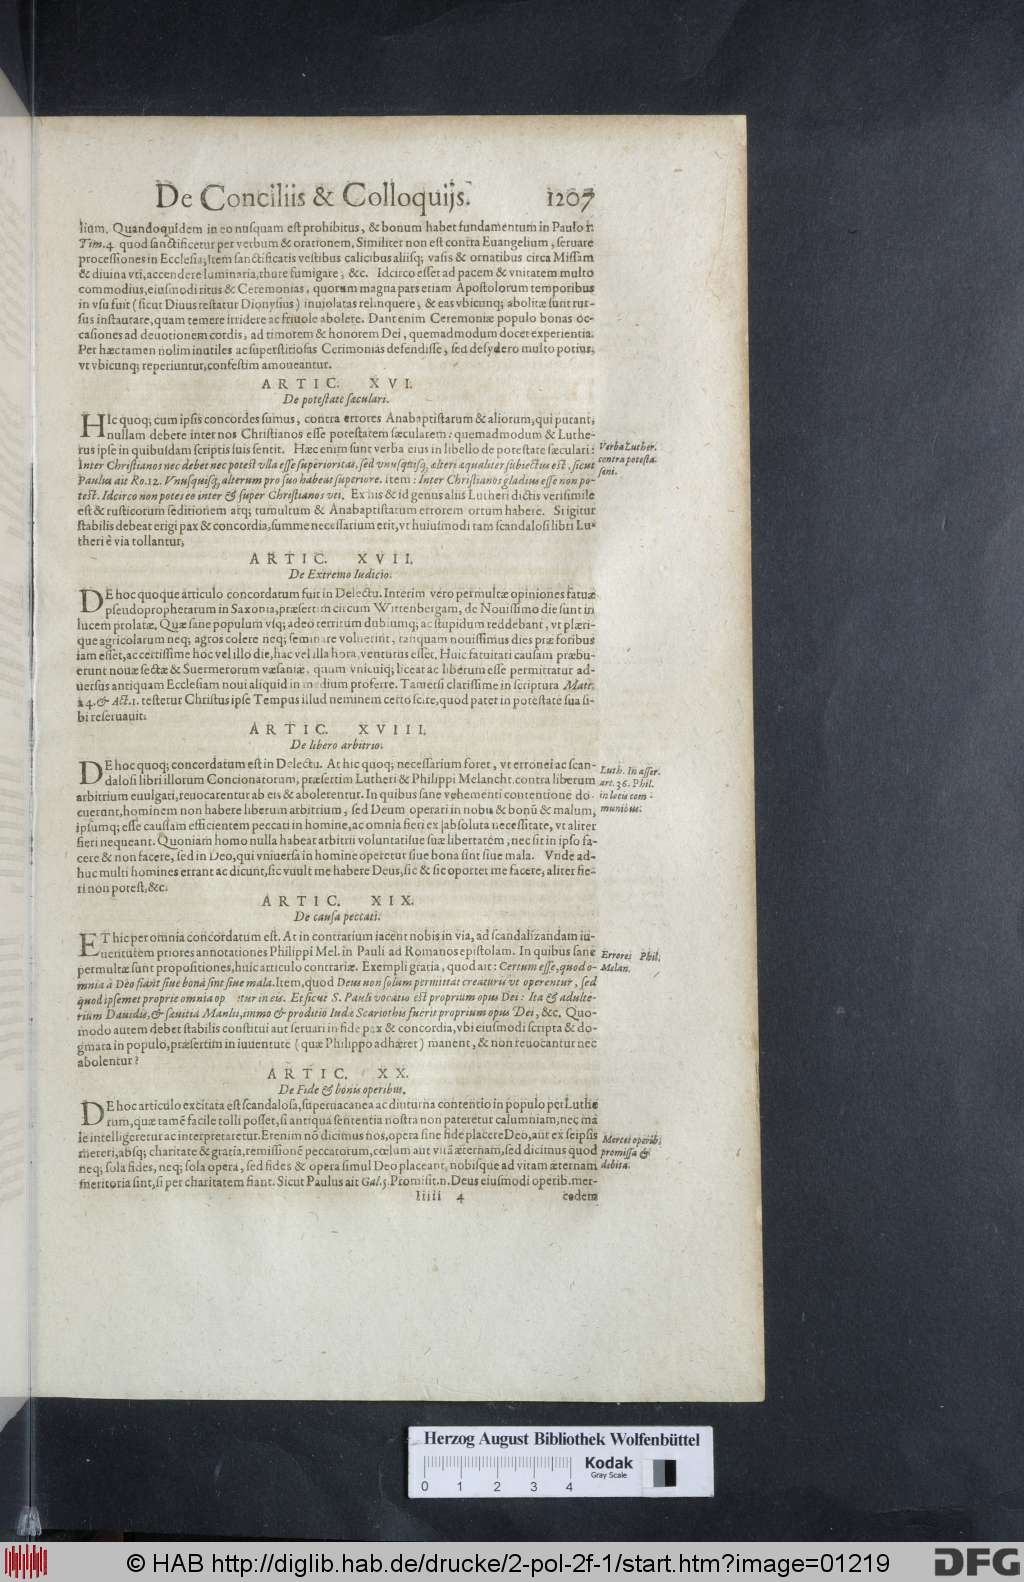 De Conciliis & Colloquijs. 1207
lium. Quandoquidem in eo nusquam est prohibitus, & bonum habet fundamentum in Paulo 1.
Tim. 4. quod sanctificetur per verbum & orationem, Similiter non est contra Euangelium, seruare
processiones in Ecclesia, Item sanctificatis vestibus calicibus aliisq; vasis & ornatibus circa Missam
& diuina vti, accendere luminaria, thure fumigare, &c. Idcirco esset ad pacem & vnitatem multo
commodius, eiusmodi ritus & Ceremonias, quorum magna pars etiam Apostolorum temporibus
in vsu fuit (sicut Diuus testatur Dionysius) inuiolatas relinquere, & eas vbicunq; abolitæ sunt rur-
sus instaurare, quam temere irridere ac friuole abolere. Dant enim Ceremoniæ populo bonas oc-
casiones ad deuotionem cordis, ad timorem & honorem Dei, quemadmodum docet experientia.
Per hæc tamen nolim inutiles ac superstitiosas Cerimonias defendisse, sed desydero multo potius,
vt vbicunq; reperiuntur, confestim amoueantur.
ARTIC. XVI.
De potestate sæculari.
HIc quoq; cum ipsis concordes sumus, contra errores Anabaptistarum & aliorum, qui putant,
nullam debere inter nos Christianos esse potestatem sæcularem: quemadmodum & Luthe-
rus ipse in quibusdam scriptis suis sentit. Hæc enim sunt verba eius in libello de potestate sæculari:
Inter Christianos nec debet nec potest vlla esse superioritas, sed vnusquisq; alteri æqualiter subiectus est, sicut
Paulus ait Ro. 12. Vnusquisq; alterum pro suo habeat superiore. item: Inter Christianos gladius esse non po-
test. Idcirco non potes eo inter & super Christianos vti. Ex his & id genus aliis Lutheri dictis verisimile
est & rusticorum seditionem atq; tumultum & Anabaptistarum errorem ortum habere. Si igitur
stabilis debeat erigi pax & concordia, summe necessarium erit, vt huiusmodi tam scandalosi libri Lu-
theri è via tollantur,
Verba Luther.
contra potesta.
sani.
ARTIC. XVII.
De Extremo Iudicio.
DE hoc quoque articulo concordatum fuit in Delectu. Interim vero permultæ opiniones fatuæ
pseudoprophetarum in Saxonia, præsertim circum Wittenbergam, de Nouissimo die sunt in
lucem prolatæ. Quæ sane populum vsq; adeo territum dubium, ac stupidum reddebant, vt pleri-
que agricolarum neq; agros colere neq; seminare voluerint, tanquam nouissimus dies præ foribus
iam esset, ac certissime hoc vel illo die, hac vel illa hora, venturus esset. Huic fatuitati causam præbu-
erunt nouæ sectæ & Suermerorum væsaniæ, quum vnicuiq; liceat ac liberum esse permittatur ad-
uersus antiquam Ecclesiam noui aliquid in medium proferre. Tametsi clarissime in scriptura Matt.
24. & Act. 1. testetur Christus ipse Tempus illud neminem certo scire, quod pater in potestate sua si-
bi reseruauit.
ARTIC. XVIII.
De libero arbitrio.
DE hoc quoq; concordatum est in Delectu. At hic quoq; necessarium foret, vt erronei ac scan-
dalosi libri illorum Concionatorum, præsertim Lutheri & Philippi Melancht. contra liberum
arbitrium euulgati, reuocarentur ab eis & abolerentur. In quibus sane vehementi contentione do-
cuerunt, hominem non habere liberum arbitrium, sed Deum operari in nobis & bonū & malum,
ipsumq; esse caussam efficientem peccati in homine, ac omnia fieri ex absoluta necessitate, vt aliter
fieri nequeant. Quoniam homo nulla habeat arbitrii voluntatisue suæ libertatem, nec sit in ipso fa-
cere & non facere, sed in Deo, qui vniuersa in homine operetur siue bona sint siue mala. Vnde ad-
huc multi homines errant ac dicunt, sic vuult me habere Deus, sic & sic oportet me facere, aliter fie-
ri non potest, &c.
Luth. In asser.
art. 36. Phil.
in locis com-
munibus.
ARTIC. XIX.
De causa peccati.
ET hic per omnia concordatum est. At in contrarium iacent nobis in via, ad scandalizandam iu-
uentutem priores annotationes Philippi Mel. in Pauli ad Romanos epistolam. In quibus sane
permultæ sunt propositiones, huic articulo contrariæ. Exempli gratia, quod ait: Certum esse, quod o-
mnia à Deo fiant siue bona sint siue mala. Item, quod Deus non solum permittat creaturis vt operentur, sed
quod ipsemet proprie omnia op etur in eis. Et sicut S. Pauli vocatio est proprium opus Dei: Ita & adulte-
rium Dauidis, & sæuitia Manlii, immo & proditio Iudæ Scariothis fuerit proprium opus Dei, &c. Quo-
modo autem debet stabilis constitui aut seruari in fide pax & concordia, vbi eiusmodi scripta & do-
gmata in populo, præsertim in iuuentute (quæ Philippo adhæret) manent, & non reuocantur nec
abolentur?
Errores Phil.
Melan.
ARTIC. XX.
De Fide & bonis operibus.
DE hoc articulo excitata est scandalosa, superuacanea ac diuturna contentio in populo per Luthe
rum, quæ tamē facile tolli posset, si antiqua sententia nostra non pateretur calumniam, nec ma
le intelligeretur ac interpretaretur. Etenim nō dicimus nos, opera sine fide placere Deo, aut ex seipsis
mereri, absq; charitate & gratia, remissionē peccatorum, cœlum aut vitā æternam, sed dicimus quod
neq; sola fides, neq; sola opera, sed fides & opera simul Deo placeant, nobisque ad vitam æternam
meritoria sint, si per charitatem fiant. Sicut Paulus ait Gal. 5. Promisit .n. Deus eiusmodi operib. mer-
Merces operib.
promissa &
debita.
Iiiii 4 cedem
Herzog August Bibliothek Wolfenbüttel
0 1 2 3 4
Kodak
Gray Scale
© HAB http://diglib.hab.de/drucke/2-pol-2f-1/start.htm?image=01219
DFG